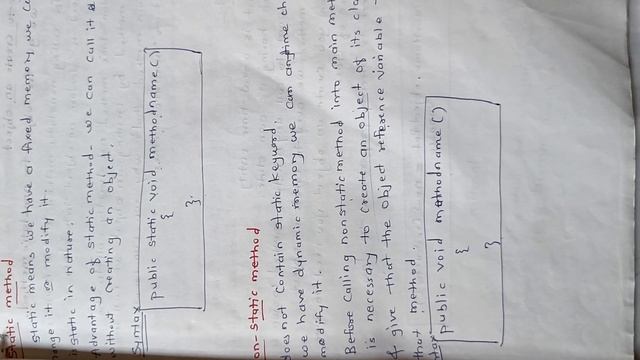 static method
static means we have a fixed memory we
it or modify it.
static in nature.
Advantage of static method- we can call it
without creating an object.
Syntax
public static void methodname()
{
}
on-static method
does not contain static keyword.
we have dynamic memory we can anytime
modify it.
Before calling nonstatic method into main
is necessary to create an object of its
& give that the object reference variable
that method.
public void methodname()
{
}